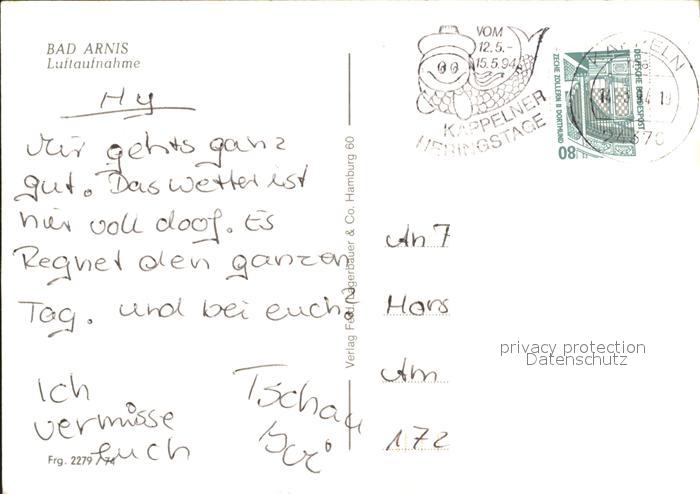 BAD ARNIS
Luftaufnahme
Hy
Mir gehts ganz
gut. Das Wetter ist
hier voll doof. Es
Regnet den ganzen
Tag. und bei euch?
Ich
vermisse
euch
Tschau
Frg. 2279 / 74
Verlag Ferd. Lagerbauer & Co. Hamburg 60
VOM
12.5.-
15.5.94
KAPPELNER
HERINGSTAGE
KAPPELN
24376
DEUTSCHE BUNDESPOST
ZECHE ZOLLERN II DORTMUND
80
An
Hars
Am
172
privacy protection
Datenschutz